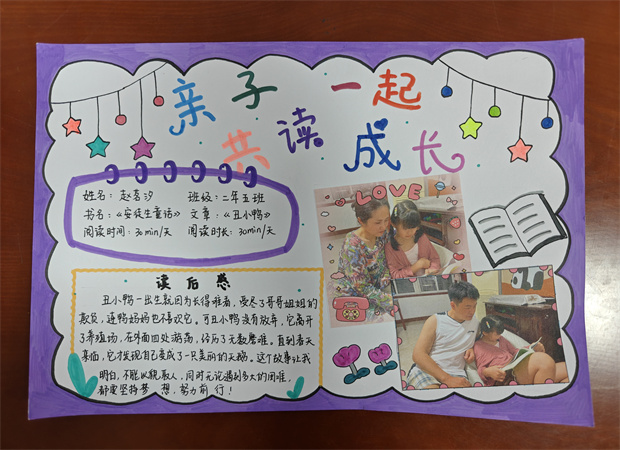 亲子一起
共读成长
姓名：赵茗汐 班级：二年五班
书名：《安徒生童话》 文章：《丑小鸭》
阅读时间：30min/天 阅读时长：30min/天
LOVE
读后感
丑小鸭一出生就因为长得难看，受尽了哥哥姐姐的
欺负，连鸭妈妈也不喜欢它。可丑小鸭没有放弃，它离开
了养殖场，在外面四处游荡，经历了无数磨难。直到春天
来临，它才发现自己变成了一只美丽的天鹅。这个故事让我
明白，不能以貌取人，同时无论遇到多大的困难，
都要坚持梦想，努力前行！